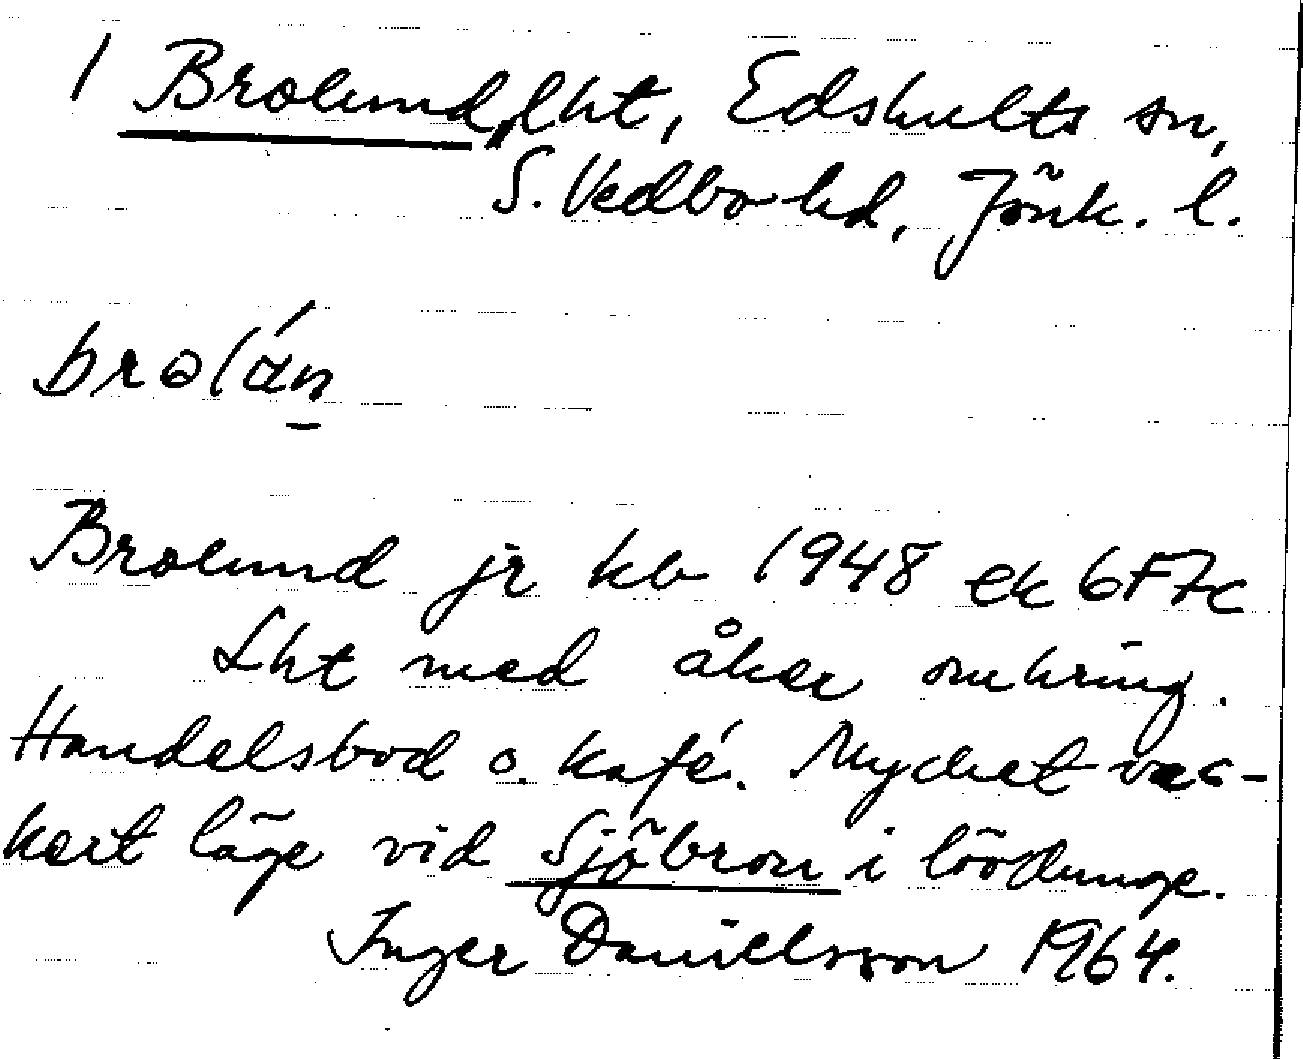 1 Brolund, lht, Edshults sn,
S. Vedbo hd, Jönk. l.
brolán
Brolund jr kb 1948 ek 6F7c
Lht med åker omkring.
Handelsbod o. kafé. Mycket vac-
kert läge vid Sjöbron i lövdunge.
Inger Daniellsson 1964.